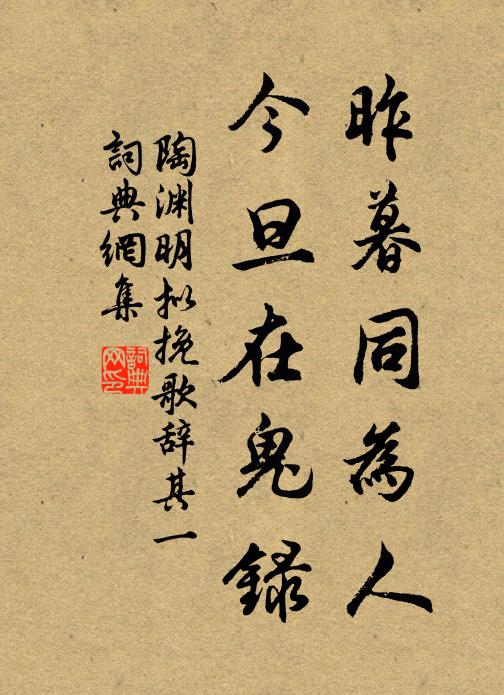 昨暮同為人
今旦在鬼録
陶渊明拟挽歌辞其一
詞典網集
詞典网印